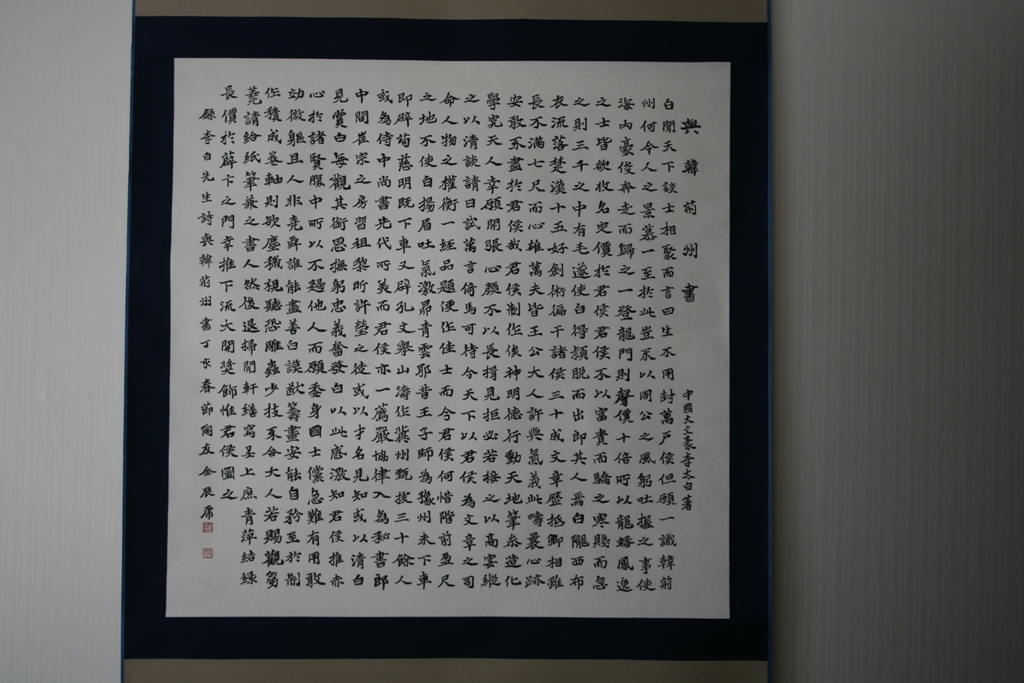 與韓荊州書
中國大文豪李太白著
白聞天下談士相聚而言曰生不用封萬戶侯但願一識韓荊
州何令人之景慕一至於此豈不以周公之風躬吐握之事使
海內豪俊奔走而歸之一登龍門則聲價十倍所以龍蟠鳳逸
之士皆欲收名定價於君侯君侯不以富貴而驕之寒賤而忽
之則三千之中有毛遂使白得穎脫而出即其人焉白隴西布
衣流落楚漢十五好劍術徧干諸侯三十成文章歷抵卿相雖
長不滿七尺而心雄萬夫皆王公大人許與氣義此疇曩心跡
安敢不盡於君侯哉君侯制作侔神明德行動天地筆參造化
學究天人幸願開張心顏不以長揖見拒必若接之以高宴縱
之以清談請日試萬言倚馬可待今天下以君侯為文章之司
命人物之權衡一經品題便作佳士而今君侯何惜階前盈尺
之地不使白揚眉吐氣激昂青雲耶昔王子師為豫州未下車
即辟荀慈明既下車又辟孔文舉山濤作冀州甄拔三十餘人
或為侍中尚書先代所美而君侯亦一薦嚴協律入為秘書郎
中間崔宗之房習祖黎昕許瑩之徒或以才名見知或以清白
見賞白每觀其銜恩撫躬忠義奮發白以此感激知君侯推赤
心於諸賢腹中所以不歸他人而願委身國士儻急難有用敢
効微軀且人非堯舜誰能盡善白謨猷籌畫安能自矜至於制
作積成卷軸則欲塵穢視聽恐雕蟲少技不合大人若賜觀芻
蕘請給紙筆兼之書人然後退掃閒軒繕寫呈上庶青萍結綠
長價於薛卞之門幸推下流大開獎飾惟君侯圖之
錄李白先生詩與韓荊州書丁亥春節陶友金辰